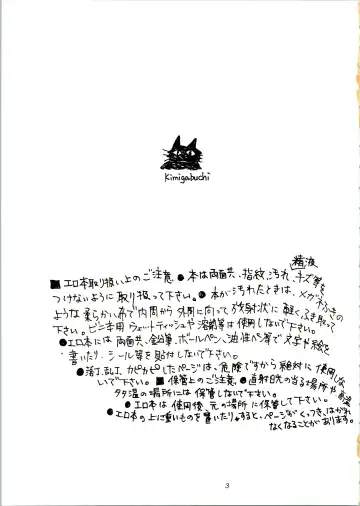 Kimigabuchi
精液
■エロ本取り扱い上のご注意●本は両面共、指紋、汚れ、キズ等を
つけないように取り扱って下さい。●本が汚れたときは、メガネふきの
ような柔らかい布で内周から外周に向って放射状に軽くふき取って
下さい。ビニ本用ウェットティッシュや溶剤等は使用しないで下さい。
●エロ本には両面共、鉛筆、ボールペン、油性ペン等で文字や絵を
書いたり、シール等を貼付しないで下さい。
●カピカピしたページは、危険ですから絶対に使用しな
いで下さい。■保管上のご注意●直射日光の当る場所や高温
多湿の場所には保管しないで下さい。
●エロ本は使用後、元の場所に保管して下さい。
●エロ本の上に重いものを置いたりすると、ページがくっつき、はがれ
なくなることがあります。
3